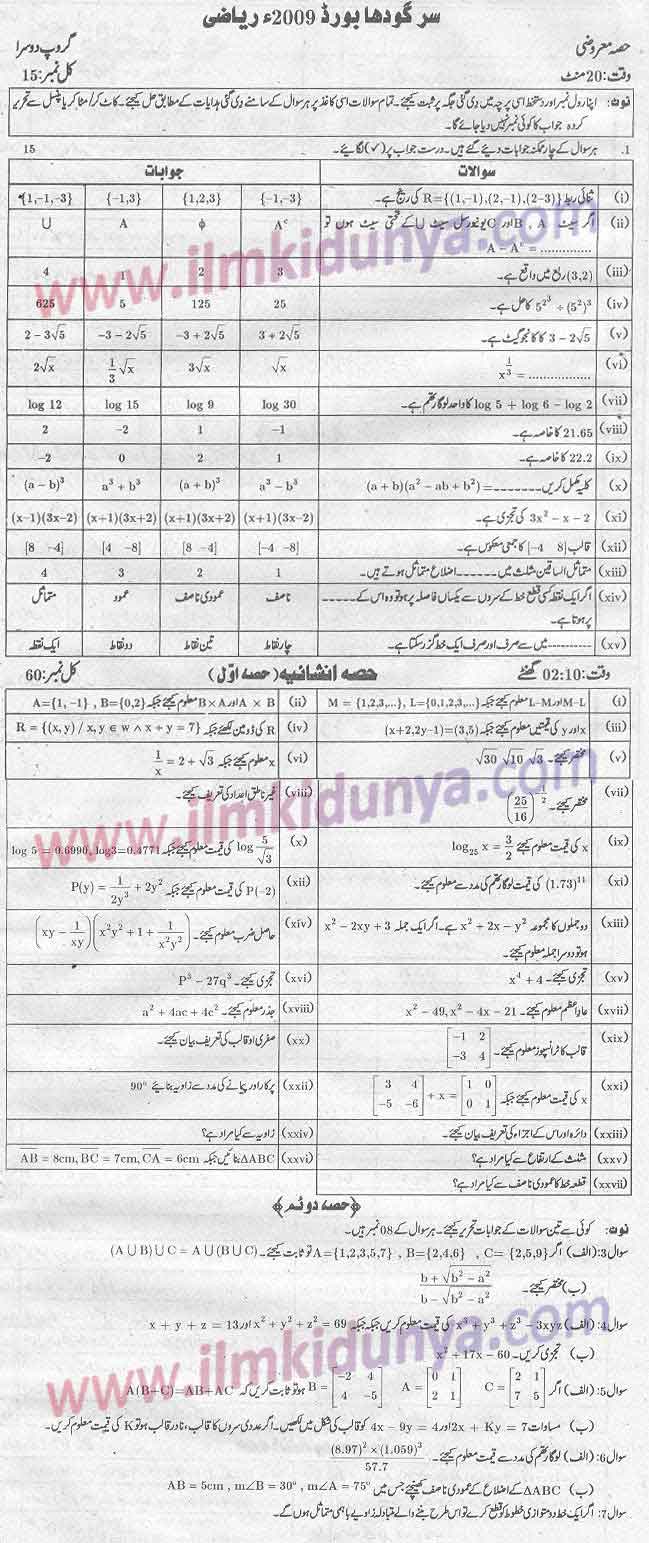 سرگودھا بورڈ 2009ء ریاضی
حصہ معروضی
گروپ دوسرا
وقت: 20 منٹ
کل نمبر: 15
نوٹ: اپنا رول نمبر اور دستخط اسی پرچہ میں دی گئی جگہ پر ثبت کیجئے۔ تمام سوالات اسی کاغذ پر ہر سوال کے سامنے دی گئی ہدایات کے مطابق حل کیجئے۔ کاٹ کر/مٹا کر یا پنسل سے تحریر
کردہ جواب کا کوئی نمبر نہیں دیا جائے گا۔
1. ہر سوال کے چار ممکنہ جوابات دیئے گئے ہیں۔ درست جواب پر (✓) لگائیے۔ 15
سوالات جوابات
(i) ثنائی ربط R={(1,−1),(2,−1),(2−3)} کی رینج ہے۔ {−1,−3} {1,2,3} {−1,3} {1,−1,−3}
(ii) اگر سیٹ A , B اور C یونیورسل سیٹ U کے تحتی سیٹ ہوں تو A − Aᶜ = ............. Aᶜ ϕ A U
(iii) (3,2) ربع میں واقع ہے۔ 3 2 1 4
(iv) 5^2^3 ÷ (5²)³ کا حل ہے۔ 25 125 5 625
(v) 3 − 2√5 کا کانجوگیٹ ہے۔ 3 + 2√5 −3 + 2√5 −3 − 2√5 2 − 3√5
(vi) x^(1/3) = ............... √x 3√x 1/3 √x 2√x
(vii) log 5 + log 6 − log 2 کا واحد لوگارتھم ہے۔ log 30 log 9 log 15 log 12
(viii) 21.65 کا خاصہ ہے۔ −1 1 −2 2
(ix) 22.2 کا خاصہ ہے۔ 1 2 0 −2
(x) کلیہ مکمل کریں۔ (a + b)(a² − ab + b²) = ------- a³ − b³ (a + b)³ a³ + b³ (a − b)³
(xi) 3x² − x − 2 کی تجزی ہے۔ (x+1)(3x−2) (x+1)(3x+2) (x+1)(3x+2) (x−1)(3x−2)
(xii) قالب [−4 8] کا جمعی معکوس ہے۔ [−4 −8] [8 −4] [4 −8] [8 −4]
(xiii) متماثل الساقین مثلث میں ------ اضلاع متماثل ہوتے ہیں۔ 1 2 3 4
(xiv) اگر ایک نقطہ کسی قطع خط کے سروں سے یکساں فاصلہ پر ہو تو وہ اس کے ----- پر ہوتا ہے۔ ناصف عمودی ناصف عمود متماثل
(xv) ---------- میں سے صرف اور صرف ایک خط گزر سکتا ہے۔ چار نقاط تین نقاط دو نقاط ایک نقطہ
وقت: 02:10 گھنٹے
حصہ انشائیہ (حصہ اوّل)
کل نمبر: 60
(i) M−L اور L−M معلوم کیجئے جبکہ M = {1,2,3,...}, L={0,1,2,3,...}
(ii) A × B اور B×A معلوم کیجئے جبکہ A={1, −1} , B={0,2}
(iii) x اور y کی قیمتیں معلوم کیجئے جبکہ (x+2,2y−1)=(3,5)
(iv) R کی ڈومین لکھئے جبکہ R = {(x, y) / x, y ∈ w ∧ x + y = 7}
(v) مختصر کیجئے۔ √30 √10 √3
(vi) x معلوم کیجئے جبکہ 1/x = 2 + √3
(vii) مختصر کیجئے۔ (25/16)^2
(viii) غیر ناطق اعداد کی تعریف کیجئے۔
(ix) x کی قیمت معلوم کیجئے log₂₅ x = 3/2
(x) log 5/√3 کی قیمت معلوم کیجئے جبکہ log 5 = 0.6990, log3=0.4771
(xi) (1.73)¹¹ کی قیمت لوگارتھم کی مدد سے معلوم کیجئے۔
(xii) P(−2) کی قیمت معلوم کیجئے جبکہ P(y) = 1/2y³ + 2y²
(xiii) دو جملوں کا مجموعہ x² + 2x − y² ہے۔ اگر ایک جملہ x² − 2xy + 3
ہو تو دوسرا جملہ معلوم کیجئے۔
(xiv) حاصل ضرب معلوم کیجئے۔ (xy − 1/xy)(x²y² + 1 + 1/x²y²)
(xv) تجزی کیجئے۔ x⁴ + 4
(xvi) تجزی کیجئے۔ P³ − 27q³
(xvii) عاد اعظم معلوم کیجئے۔ x² − 49, x² − 4x − 21
(xviii) جذر معلوم کیجئے۔ a² + 4ac + 4c²
(xix) قالب کا ٹرانسپوز معلوم کیجئے۔ [−1 2; −3 4]
(xx) صفری قالب کی تعریف بیان کیجئے۔
(xxi) x کی قیمت معلوم کیجئے جبکہ [3 4; −5 −6] + x = [1 0; 0 1]
(xxii) پرکار اور پیمانے کی مدد سے زاویہ بنائیے 90°
(xxiii) دائرہ اور اس کے اجزاء کی تعریف بیان کیجئے۔
(xxiv) زاویہ سے کیا مراد ہے؟
(xxv) مثلث کے ارتفاع سے کیا مراد ہے؟
(xxvi) ΔABC بنائیں جبکہ AB = 8cm, BC = 7cm, CA = 6cm
(xxvii) قطعہ خط کا عمودی ناصف سے کیا مراد ہے؟
﴿حصہ دوئم﴾
نوٹ: کوئی سے تین سوالات کے جوابات تحریر کیجئے۔ ہر سوال کے 08 نمبر ہیں۔
سوال3: (الف) اگر A={1,2,3,5,7} , B={2,4,6} , C= {2,5,9} تو ثابت کیجئے۔ (A ∪ B) ∪ C = A ∪ (B ∪ C)
(ب) مختصر کیجئے۔ (b + √(b² − a²))/(b − √(b² − a²))
سوال4: (الف) x³ + y³ + z³ − 3xyz کی قیمت معلوم کریں جبکہ جبکہ x² + y² + z² = 69 اور x + y + z = 13
(ب) تجزی کریں۔ x² + 17x − 60
سوال5: (الف) اگر C = [2 1; 7 5] A = [0 1; 2 1] B = [−2 4; 4 −5] ہو تو ثابت کریں کہ A(B+C)=AB+AC
(ب) مساوات 2x + Ky = 7 اور 4x − 9y = 4 کو قالب کی شکل میں لکھیں۔ اگر عددی سروں کا قالب، نادر قالب ہو تو K کی قیمت معلوم کریں۔
سوال6: (الف) لوگارتھم کی مدد سے قیمت معلوم کیجئے۔ (8.97)² × (1.059)³ / 57.7
(ب) ΔABC کے اضلاع کے عمودی ناصف کھینچئے جس میں AB = 5cm , m∠B = 30° , m∠A = 75°
سوال7: اگر ایک خط دو متوازی خطوط کو قطع کرے تو اس طرح بننے والے متبادلہ زاویے باہمی متماثل ہوں گے۔
www.ilmkidunya.com
www.ilmkidunya.com
www.ilmkidunya.com